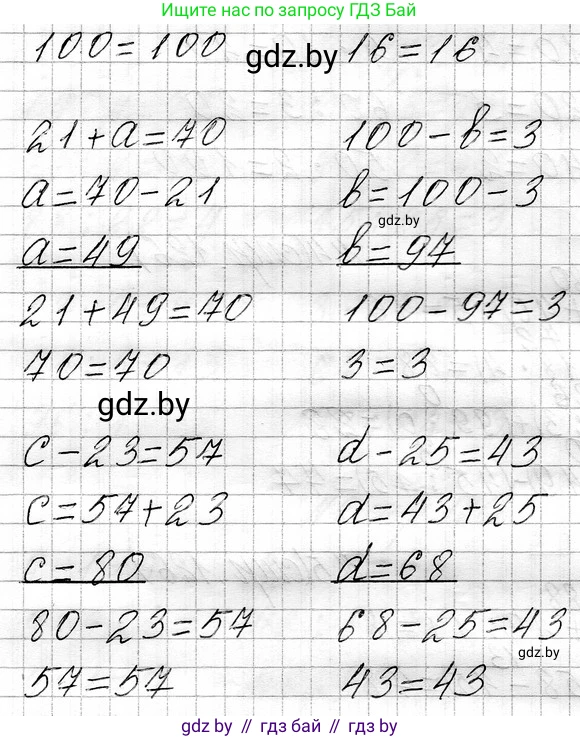 Ищите нас по запросу ГДЗ Бай
100=100
gdz.by
16=16
21+a=70
a=70-21
a=49
21+49=70
70=70
100-в=3
в=100-3
gdz.by
в=97
100-97=3
3=3
gdz.by
c-23=57
c=57+23
c=80
80-23=57
57=57
d-25=43
d=43+25
d=68
68-25=43
gdz.by
43=43
gdz.by // гдз бай // gdz.by